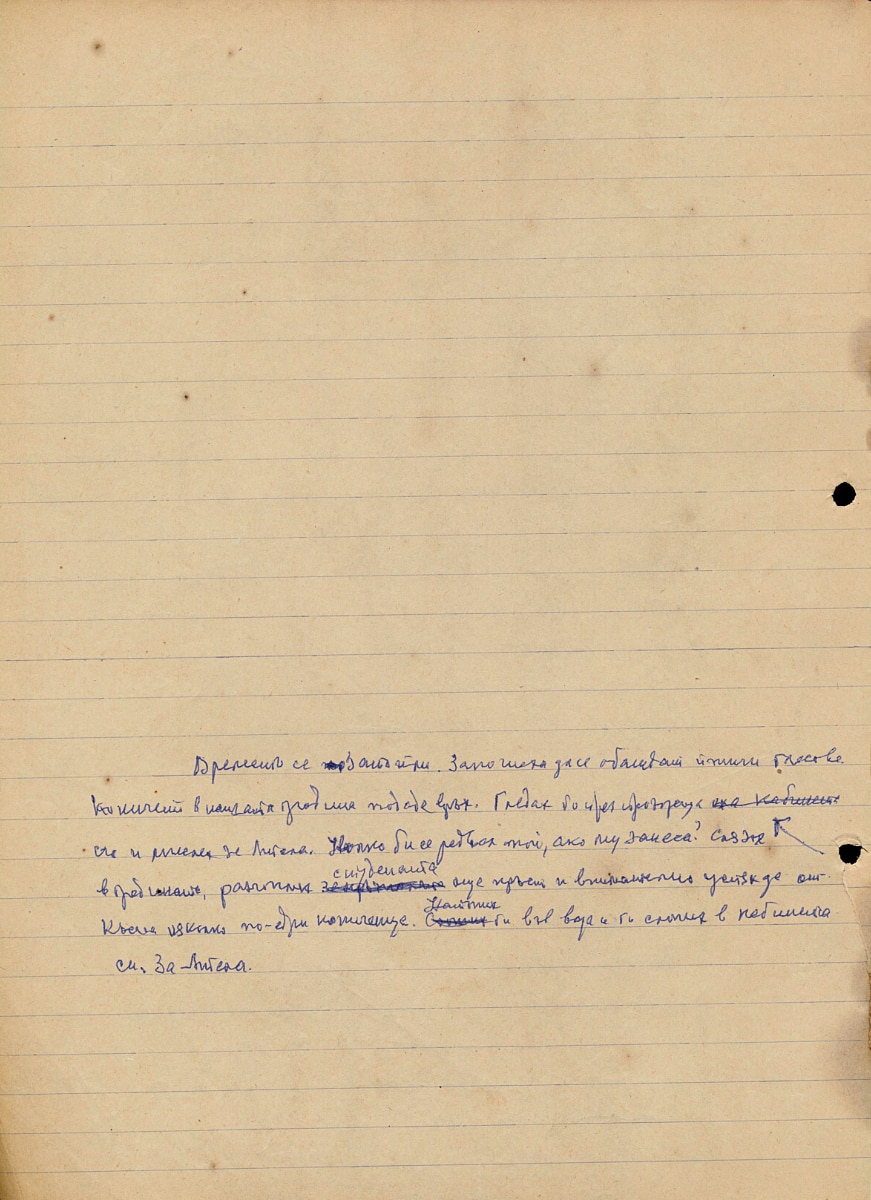 Времето се затопли. Започнаха да се обаждат птичи гласове.
Кокичето в нашата градина подаде връх. Гледах го през прозореца на кабинета
си и мислех за Антена. Колко би се радвал той, ако му занеса? Слязох
в градината, разчопли студената още пръст и внимателно успях да от-
късна няколко по-едри кокичета. Натопих ги във вода и ги сложих в кабинета
си. За Антена.